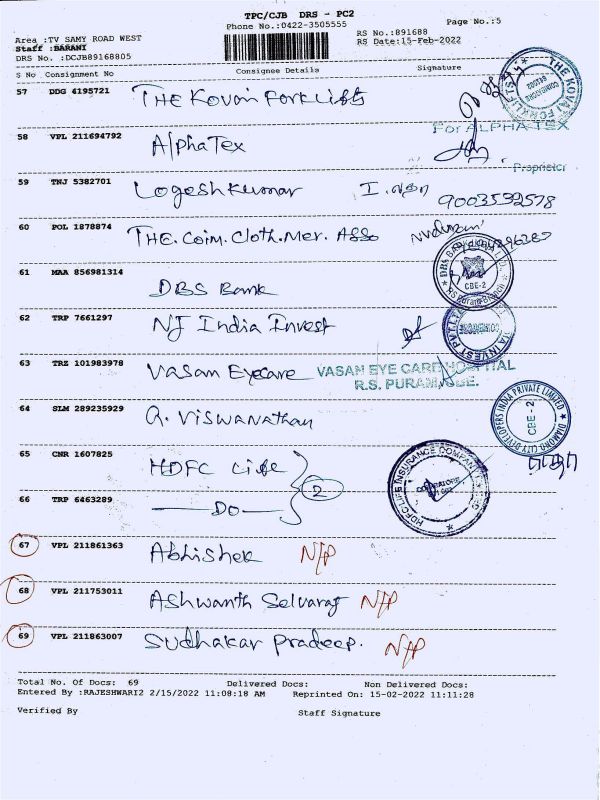 TPC/CJB DRS - PC2
Phone No.:0422-3505555
Page No.:5
Area :TV SAMY ROAD WEST
RS No.:891688
Staff :BARANI
RS Date:15-Feb-2022
DRS No. :DCJB89168805
S No Consignment No Consignee Details Signature
57 DDG 6195721 THE Kovai Forklifts
THE KOVAI FORKLIFTS
COIMBATORE
641002
58 VPL 211694792 Alpha Tex
For ALPHA TEX
Proprietor
59 TNJ 5382701 Logeshkumar
9003532578
60 POL 1878874 THE. Coim. Cloth. Mer. Asso
61 MAA 856981314 DBS Bank
CBE-2
62 TRP 7661297 NJ India Invest
63 TRZ 101983978 Vasan Eyecare
VASAN EYE CARE HOSPITAL
R.S. PURAM, CBE.
64 SLM 289235929 Viswanathan
DIAMOND CITY DEVELOPERS INDIA PRIVATE LIMITED
CBE - 2
65 CNR 1607825 HDFC Life
2
HDFC LIFE INSURANCE COMPANY
66 TRP 6463289 DO
67 VPL 211861363 Abhishek N/P
68 VPL 211753011 Ashwanth Selvaraj N/P
69 VPL 211863007 Sudhakar Pradeep. N/P
Total No. Of Docs: 69 Delivered Docs: Non Delivered Docs:
Entered By :RAJESHWARI2 2/15/2022 11:08:18 AM Reprinted On: 15-02-2022 11:11:28
Verified By Staff Signature